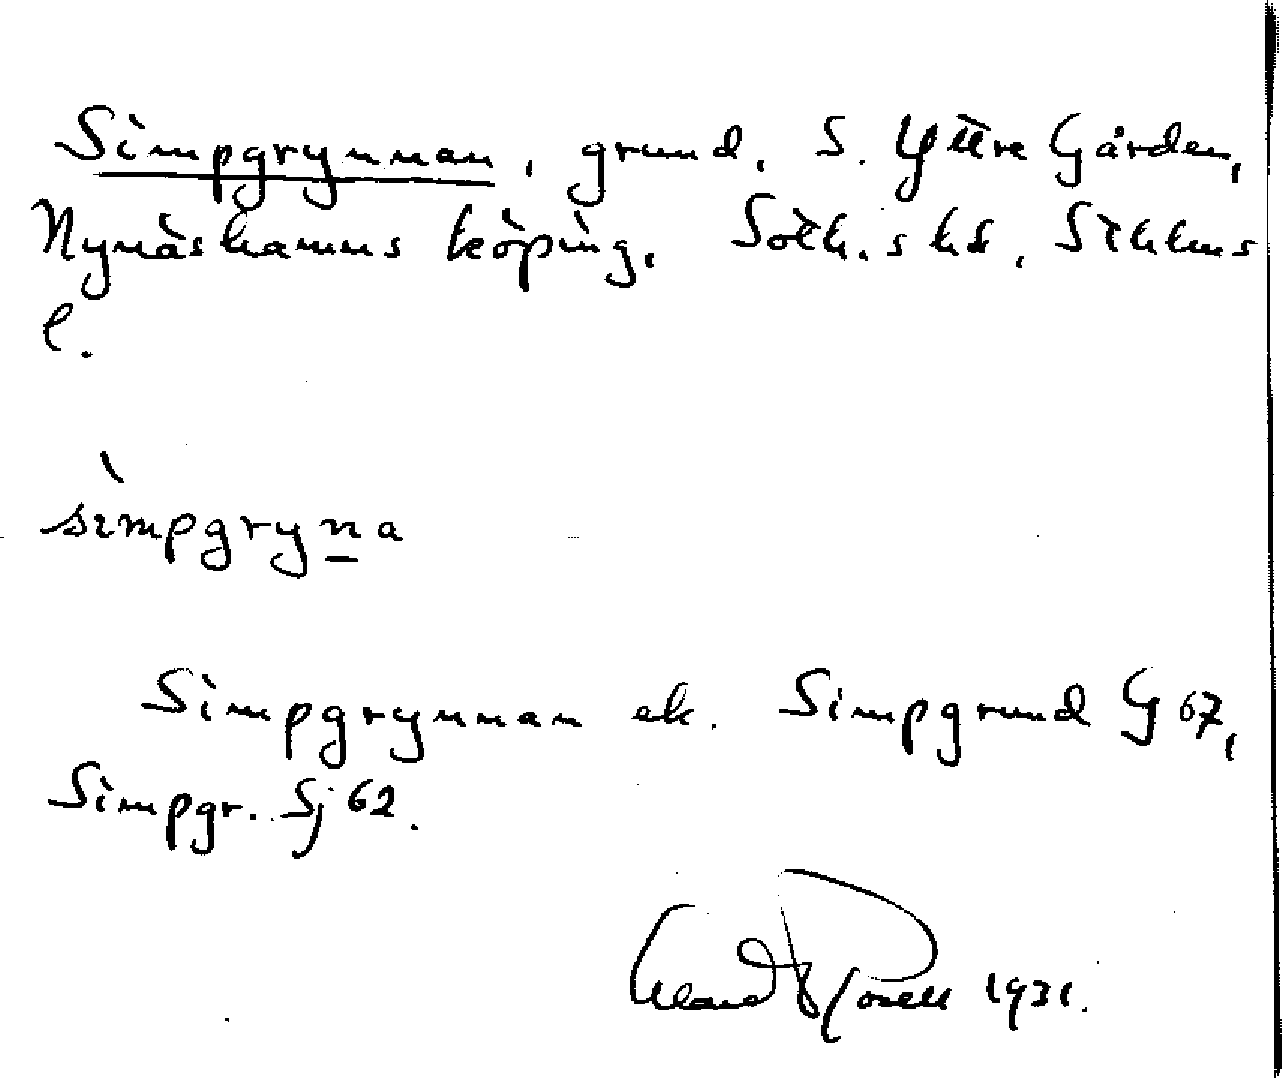 Simpgrynnan, grund, S. Yttre Gården,
Nynäshamns köping, Soth.s hd, Sthlms
l.
simpgryna
Simpgrynnan ek. Simpgrund G 67,
Simpgr. Sj 62.
1931.